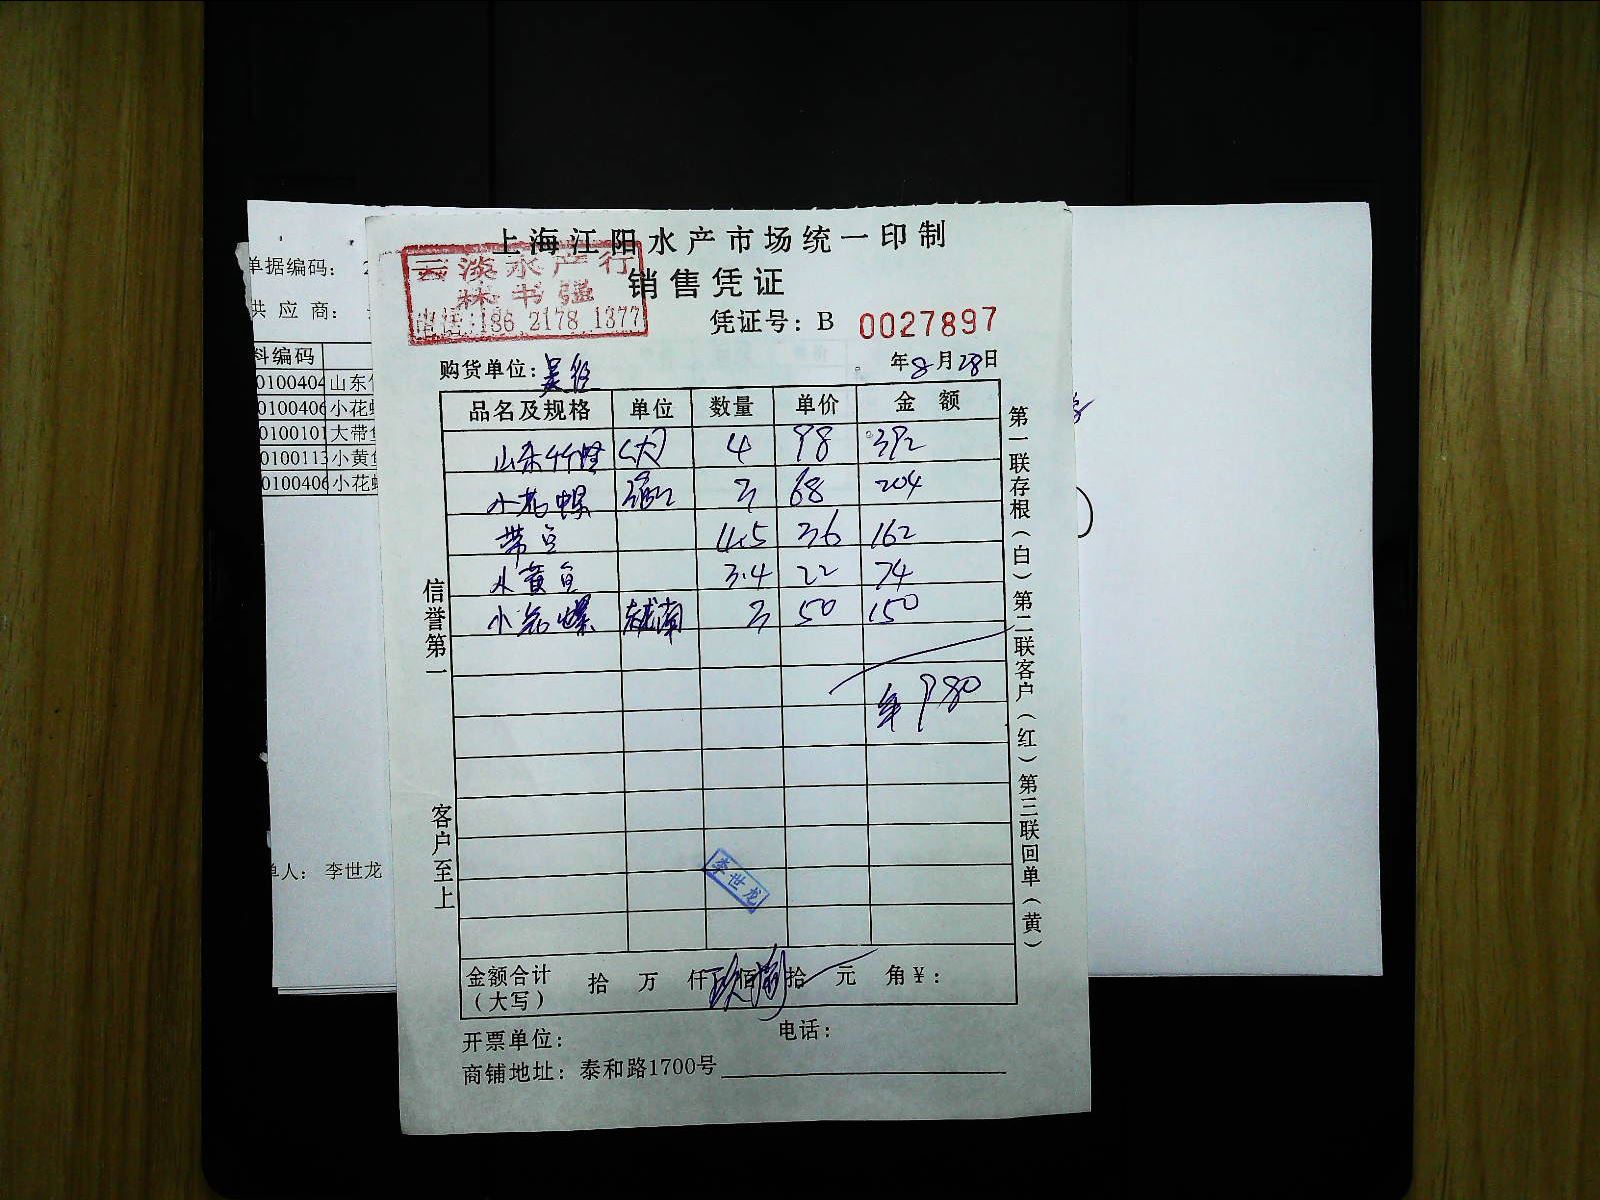 上海江阳水产市场统一印制
销售凭证
云淡水产行
林书强
电话:186 2178 1377
凭证号：B 0027897
购货单位：吴
年8月28日
品名及规格 单位 数量 单价 金额
山东竹蛏 (大) 4 98 392
小花螺 3 68 204
带鱼 4.5 36 162
小黄鱼 3.4 22 74
小花螺 越南 3 50 150
980
信誉第一
客户至上
第一联存根（白）第二联客户（红）第三联回单（黄）
李世龙
金额合计（大写） 拾 万 仟 玖佰捌拾 元 角¥：
开票单位： 电话：
商铺地址：泰和路1700号
单据编码： 2
供应商：
料编码
0100404 山东
0100406 小花
0100101 大带
0100113 小黄
0100406 小花
单人： 李世龙